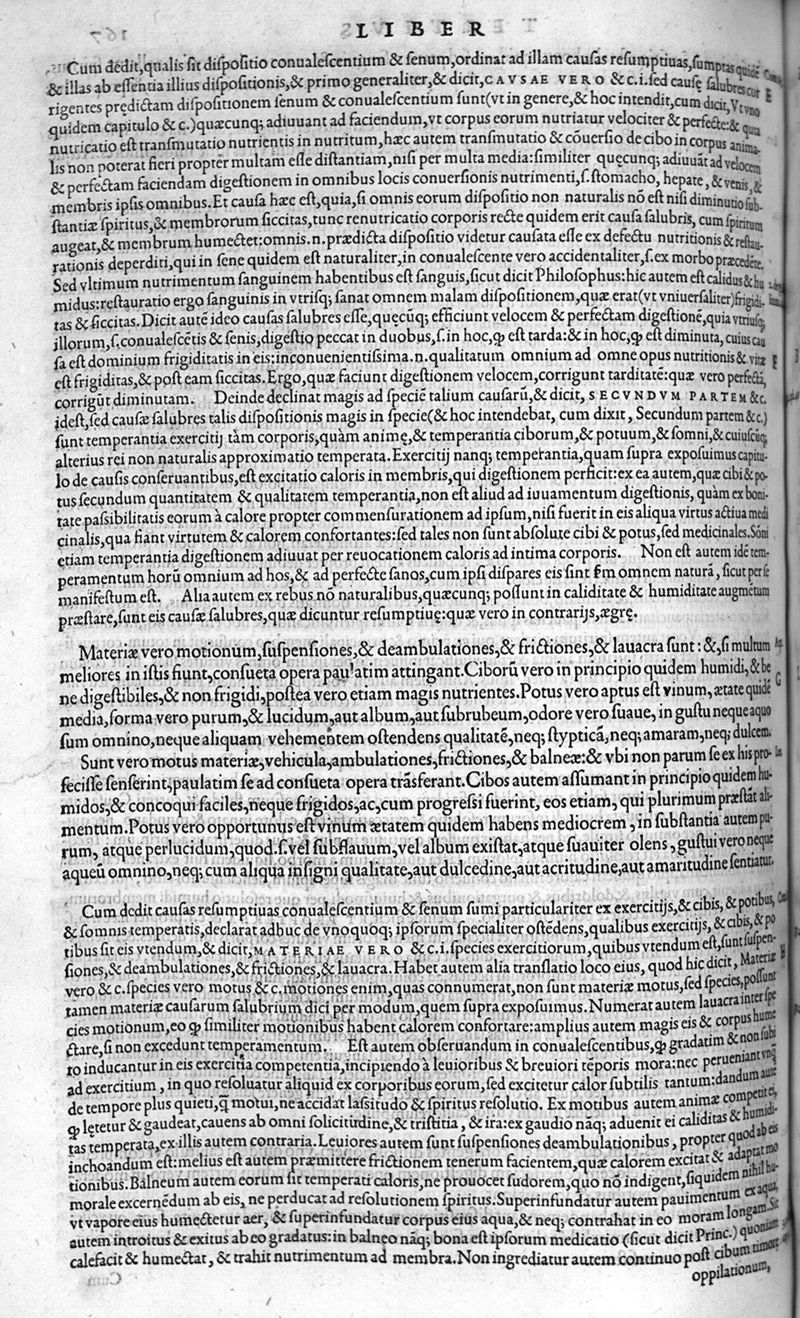 LIBER
Cum dedit, qualis sit dispositio conualescentium & senum, ordinat ad illam causas resumptiuas, sumptas quidē
& illas ab essentia illius dispositionis, & primo generaliter, & dicit, CAVSAE VERO & c. i. sed causę salubres cor
rigentes prędictam dispositionem senum & conualescentium sunt (vt in genere, & hoc intendit, cum dicit, Vt vno
quidem capitulo & c.) quæcunq; adiuuant ad faciendum, vt corpus eorum nutriatur velociter & perfecte: & quia
nutricatio est transmutatio nutrientis in nutritum, hæc autem transmutatio & cōuersio de cibo in corpus anima-
lis non poterat fieri propter multam esse distantiam, nisi per multa media: similiter quęcunq; adiuuāt ad velocem
& perfectam faciendam digestionem in omnibus locis conuersionis nutrimenti, s. stomacho, hepate, & venis, &
membris ipsis omnibus. Et causa hæc est, quia, si omnis eorum dispositio non naturalis nō est nisi diminutio sub-
stantiæ spiritus, & membrorum siccitas, tunc renutricatio corporis recte quidem erit causa salubris, cum spiritum
augeat, & membrum humectet: omnis. n. prædicta dispositio videtur causata esse ex defectu nutritionis & restau-
rationis deperditi, qui in sene quidem est naturaliter, in conualescente vero accidentaliter, s. ex morbo præcedēte.
Sed vltimum nutrimentum sanguinem habentibus est sanguis, sicut dicit Philosophus: hic autem est calidus & hu
midus: restauratio ergo sanguinis in vtrisq; sanat omnem malam dispositionem, quæ erat (vt vniuersaliter) frigidi-
tas & siccitas. Dicit autē ideo causas salubres esse, quęcūq; efficiunt velocem & perfectam digestionē, quia vtriusq;
illorum, s. conualescētis & senis, digestio peccat in duobus, s. in hoc, ꝙ est tarda: & in hoc, ꝙ est diminuta, cuius cau
sa est dominium frigiditatis in eis: inconuenientissima. n. qualitatum omnium ad omne opus nutritionis & vitæ
est frigiditas, & post eam siccitas. Ergo, quæ faciunt digestionem velocem, corrigunt tarditatē: quæ vero perfectā,
corrigūt diminutam. Deinde declinat magis ad speciē talium causarū, & dicit, SECVNDVM PARTEM & c.
idest, sed causæ salubres talis dispositionis magis in specie (& hoc intendebat, cum dixit, Secundum partem & c.)
sunt temperantia exercitij tàm corporis, quàm animę, & temperantia ciborum, & potuum, & somni, & cuiuscūq;
alterius rei non naturalis approximatio temperata. Exercitij nanq; temperantia, quam supra exposuimus capitu-
lo de causis conseruantibus, est excitatio caloris in membris, qui digestionem perficit: ex ea autem, quæ cibi & po-
tus secundum quantitatem & qualitatem temperantia, non est aliud ad iuuamentum digestionis, quàm ex boni-
tate passibilitatis eorum à calore propter commensurationem ad ipsum, nisi fuerit in eis aliqua virtus actiua medi
cinalis, qua fiant virtutem & calorem confortantes: sed tales non sunt absolute cibi & potus, sed medicinales. Sōni
etiam temperantia digestionem adiuuat per reuocationem caloris ad intima corporis. Non est autem idē tem-
peramentum horū omnium ad hos, & ad perfecte sanos, cum ipsi dispares eis sint ſm omnem naturā, sicut per se
manifestum est. Alia autem ex rebus nō naturalibus, quæcunq; possunt in caliditate & humiditate augmētum
præstare, sunt eis causæ salubres, quæ dicuntur resumptiuę: quæ vero in contrarijs, ægrę.
Materiæ vero motionum, suspensiones, & deambulationes, & frictiones, & lauacra sunt: &, si multum
meliores in istis fiunt, consueta opera paulatim attingant. Ciborū vero in principio quidem humidi, & be
ne digestibiles, & non frigidi, postea vero etiam magis nutrientes. Potus vero aptus est vinum, ætate quidē
media, forma vero purum, & lucidum, aut album, aut subrubeum, odore vero suaue, in gustu neque aquo
sum omnino, neque aliquam vehementem ostendens qualitatē, neq; stypticā, neq; amaram, neq; dulcem.
Sunt vero motus materiæ, vehicula, ambulationes, frictiones, & balneæ: & vbi non parum se ex his pro-
fecisse senserint, paulatim se ad consueta opera trāsferant. Cibos autem assumant in principio quidem hu-
midos, & concoqui faciles, neque frigidos, ac, cum progressi fuerint, eos etiam, qui plurimum præstāt ali-
mentum. Potus vero opportunus est vinum ætatem quidem habens mediocrem, in substantia autem pu-
rum, atque perlucidum, quod. s. vel subflauum, vel album existat, atque suauiter olens, gustui vero neque
aqueū omnino, neq; cum aliqua insigni qualitate, aut dulcedine, aut acritudine, aut amaritudine sentiatur.
Cum dedit causas resumptiuas conualescentium & senum sumi particulariter ex exercitijs, & cibis, & potibus,
& somnis temperatis, declarat adhuc de vnoquoq; ipsorum specialiter ostēdens, qualibus exercitijs, & cibis, & po
tibus sit eis vtendum, & dicit, MATERIAE VERO & c. i. species exercitiorum, quibus vtendum est, sunt suspen-
siones, & deambulationes, & frictiones, & lauacra. Habet autem alia translatio loco eius, quod hic dicit, Materiæ
vero & c. species vero motus & c. motiones enim, quas connumerat, non sunt materiæ motus, sed species, possunt
tamen materiæ causarum salubrium dici per modum, quem supra exposuimus. Numerat autem lauacra inter spe
cies motionum, eo ꝙ similiter motionibus habent calorem confortare: amplius autem magis eis & corpus hume
ctare, si non excedunt temperamentum. Est autem obseruandum in conualescentibus, ꝙ gradatim & non subi
to inducantur in eis exercitia competentia, incipiendo à leuioribus & breuiori tēporis mora: nec perueniant vnq̃
ad exercitium, in quo resoluatur aliquid ex corporibus eorum, sed excitetur calor subtilis tantum: dandum aute
de tempore plus quieti, q̃ motui, ne accidat lassitudo & spiritus resolutio. Ex motibus autem animæ competit ei,
ꝙ lętetur & gaudeat, cauens ab omni solicitudine, & tristitia, & ira: ex gaudio nāq; aduenit ei caliditas & humidi-
tas temperata, ex illis autem contraria. Leuiores autem sunt suspensiones deambulationibus, propter quod ab eis
inchoandum est: melius est autem præmittere frictionem tenerum facientem, quæ calorem excitat & adaptat mo
tionibus. Balneum autem eorum sit temperati caloris, ne prouocet sudorem, quo nō indigent, siquidem nihil hu-
morale excernēdum ab eis, ne perducat ad resolutionem spiritus. Superinfundatur autem pauimentum ex aqua,
vt vapore eius humectetur aer, & superinfundatur corpus eius aqua, & neq; contrahat in eo moram longam. Sit
autem introitus & exitus ab eo gradatus: in balneo nāq; bona est ipsorum medicatio (sicut dicit Princ.) quoniam
calefacit & humectat, & trahit nutrimentum ad membra. Non ingrediatur autem continuo post cibum timore
oppilationum,